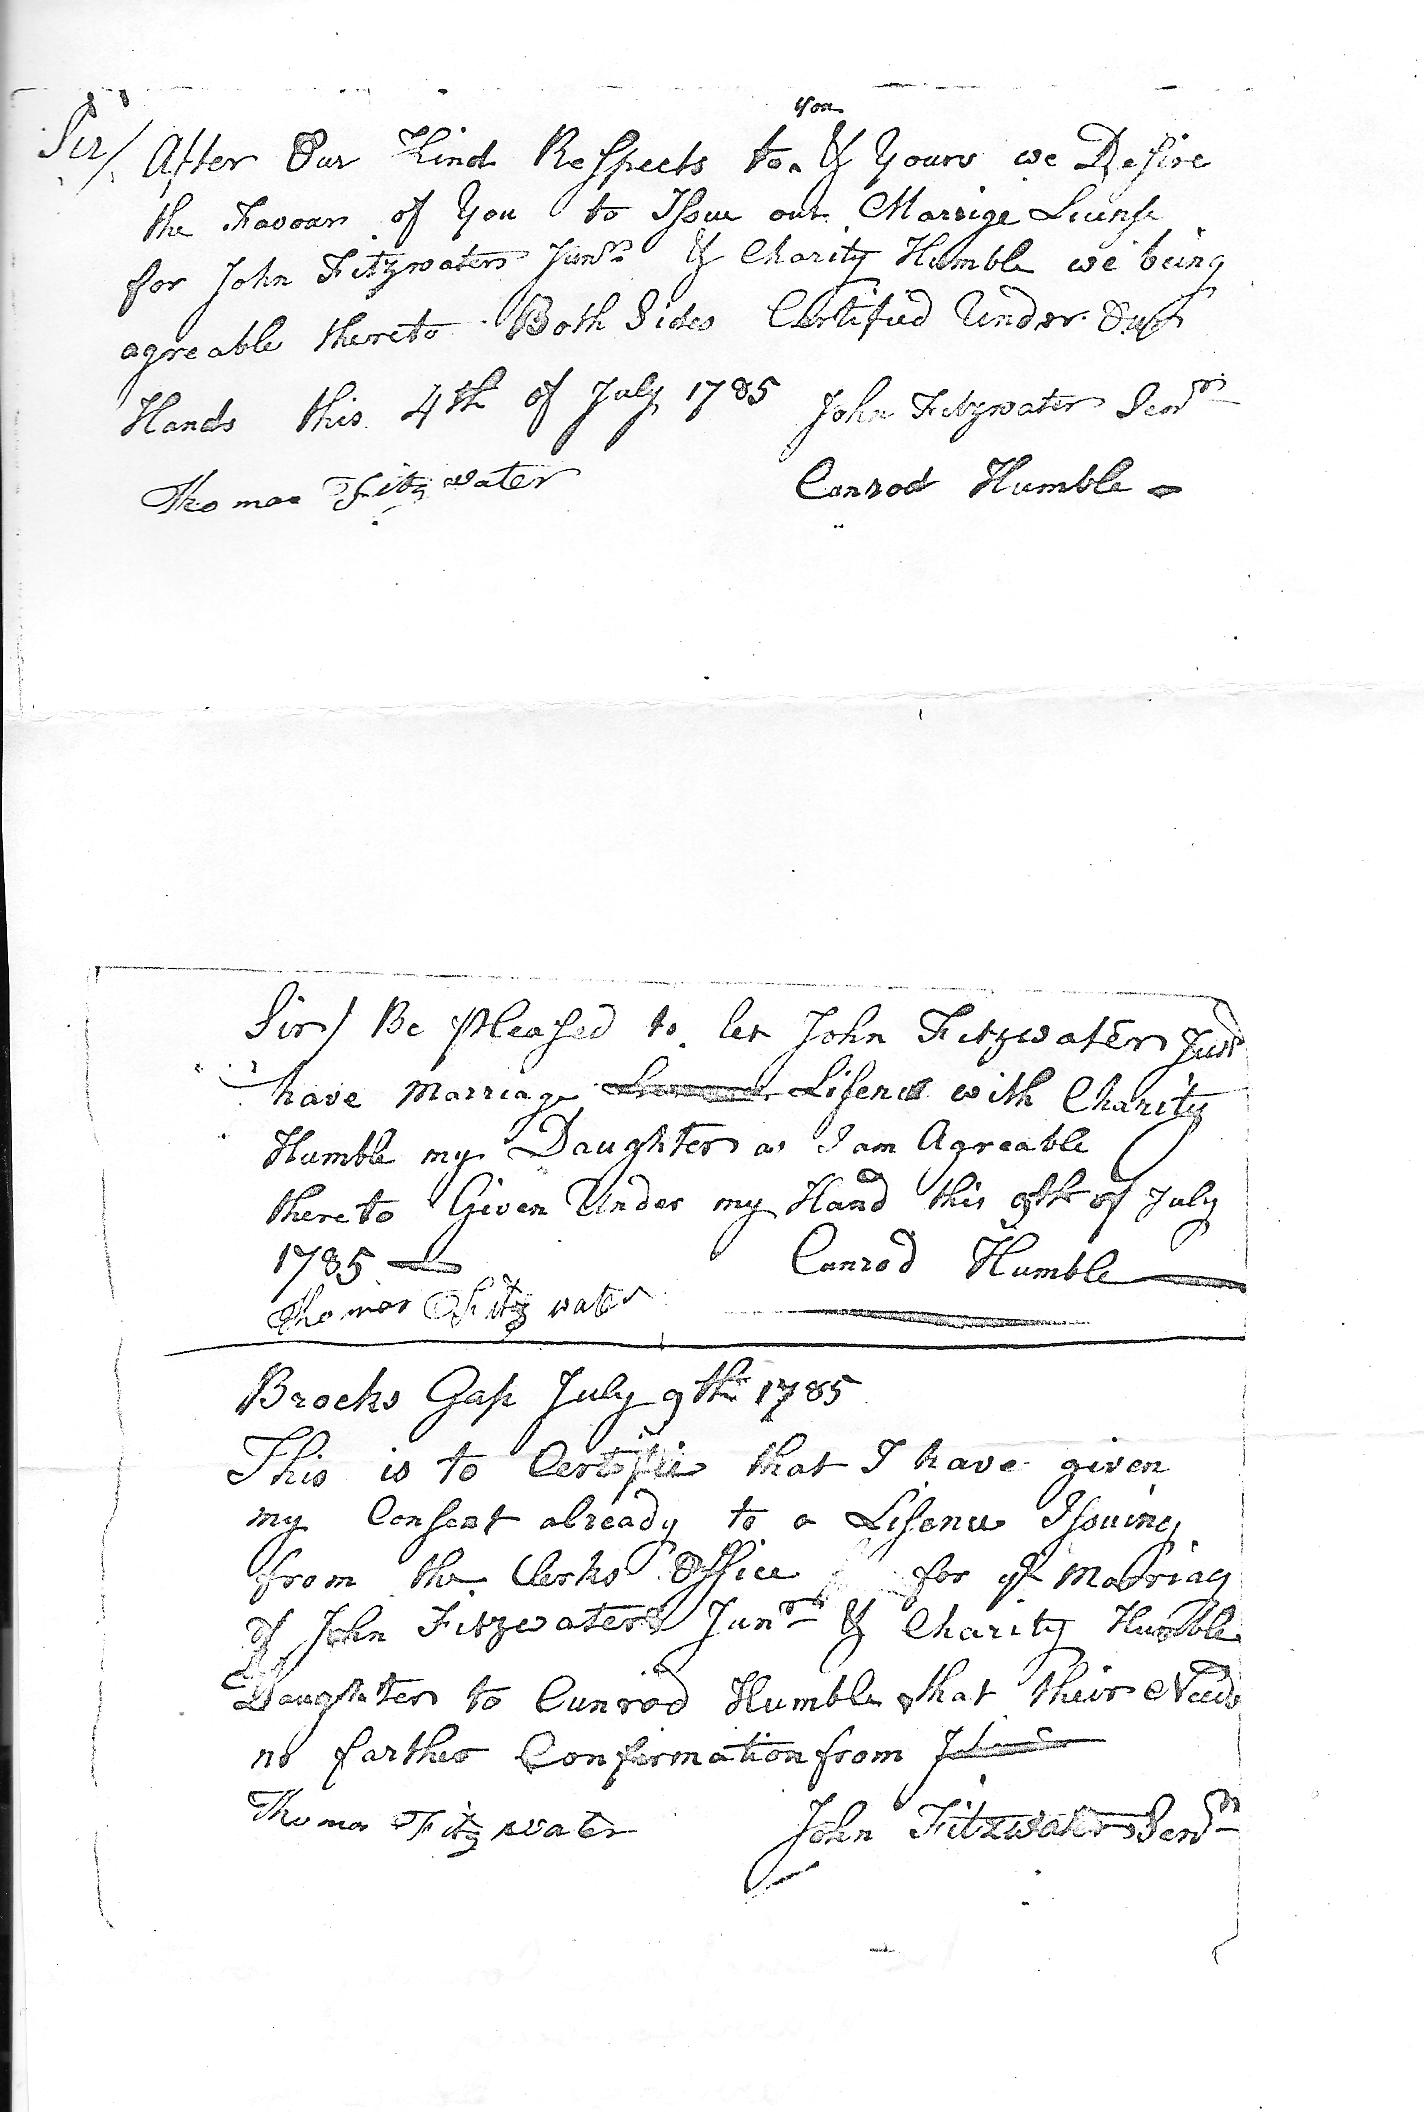 you
Sir/ After Our Kind Respects to & Yours we Desire
the Favour of You to Issue out Marrige License
for John Fitzwaters Junr & Charity Humble we being
agreable thereto Both Sides Certified Under Our
Hands this 4th of July 1785 John Fitzwater Senr
Thomas Fitzwater Conrod Humble
Sir/ Be Pleased to let John Fitzwaters Junr
have Marriage Lisence with Charity
Humble my Daughter as I am Agreable
thereto Given Under my Hand this 9th of July
1785 Conrod Humble
Thomas Fitzwater
Brocks Gap July 9th 1785
This is to Certifie that I have given
my Consent already to a Lisence Isouing
from the Clerks Office for ye Marriag
of John Fitzwaters Junr & Charity Humble
Daughter to Cunrod Humble that their Needs
no farther Confirmation from
Thomas Fitzwater John Fitzwaters Senr